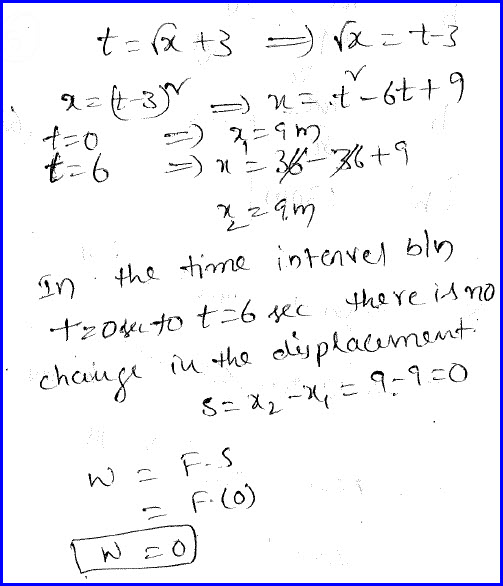 t = √x + 3 ⇒ √x = t-3
x = (t-3)² ⇒ x = t² - 6t + 9
t=0 ⇒ x₁ = 9m
t=6 ⇒ x = 36 - 36 + 9
x₂ = 9m
In the time interval b/n
t=0sec to t=6 sec there is no
change in the displacement.
S = x₂ - x₁ = 9-9=0
W = F.S
= F.(0)
W = 0